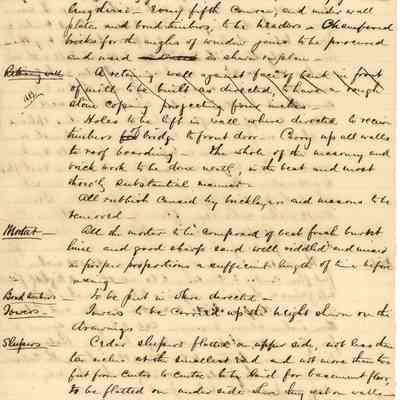 Every fifth course, and under wall
plates and bond timbers, to be headers — Chamfered
bricks for the angles of window jambs to be procured
and used as shown on plan —
Retaining wall — A retaining wall against face of bank in front
of mill to be built as directed, to have a rough
stone coping projecting four inches —
Holes to be left in wall where directed to receive
timbers for bridge to front door — Carry up all walls
to roof boarding — The whole of the masonry and
brick work to be done neatly, in the best and most
thoroly substantial manner —
All rubbish caused by bricklayers and masons to be
removed —
Mortar — All the mortar to be composed of best fresh burnt
lime and good sharp sand well riddled and mixed
in proper proportions a sufficient length of time before
using —
Bond timbers — To be put in where directed —
Towers — Towers to be carried up the height shown on the
drawings —
Sleepers — Cedar sleepers flatted on upper side, not less than
ten inches at the smallest end and not more than two
feet from centre to centre to be laid for basement floor,
to be flatted on under side where they rest on walls —